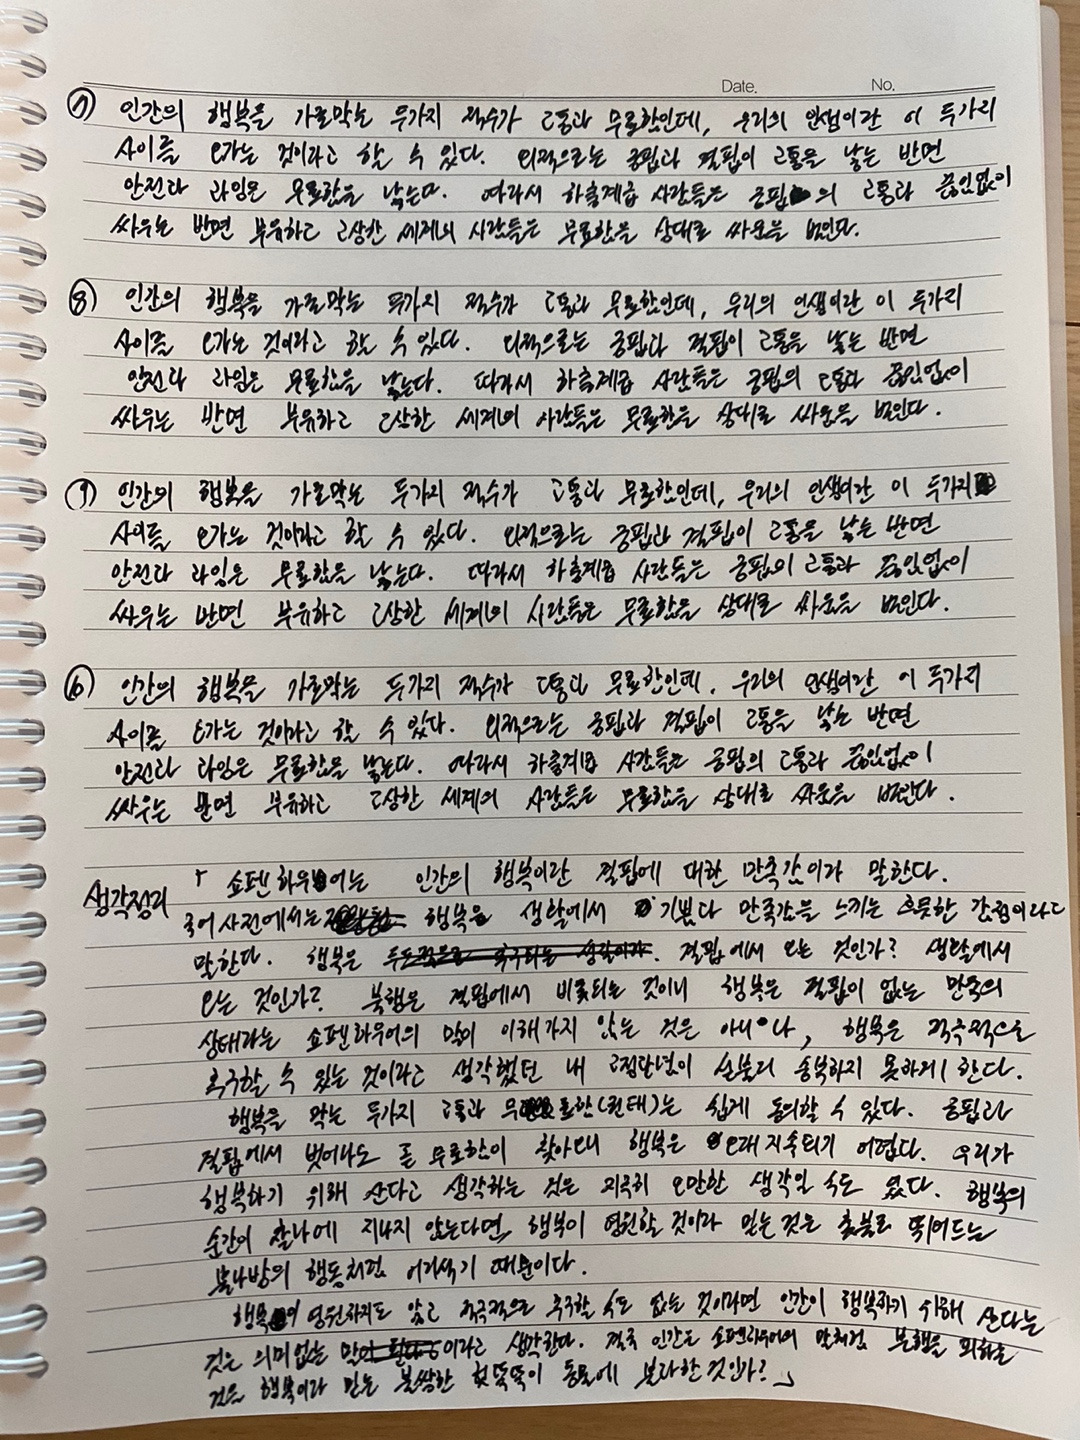 Date. No.
⑦ 인간의 행복을 가로막는 두가지 적수가 고통과 무료함인데, 우리의 인생이란 이 두가지
사이를 오가는 것이라고 할 수 있다. 외적으로는 궁핍과 결핍이 고통을 낳는 반면
안전과 과잉은 무료함을 낳는다. 따라서 하층계급 사람들은 궁핍의 고통과 끊임없이
싸우는 반면 부유하고 고상한 세계의 사람들은 무료함을 상대로 싸움을 벌인다.
⑧ 인간의 행복을 가로막는 두가지 적수가 고통과 무료함인데, 우리의 인생이란 이 두가지
사이를 오가는 것이라고 할 수 있다. 외적으로는 궁핍과 결핍이 고통을 낳는 반면
안전과 과잉은 무료함을 낳는다. 따라서 하층계급 사람들은 궁핍의 고통과 끊임없이
싸우는 반면 부유하고 고상한 세계의 사람들은 무료함을 상대로 싸움을 벌인다.
⑨ 인간의 행복을 가로막는 두가지 적수가 고통과 무료함인데, 우리의 인생이란 이 두가지
사이를 오가는 것이라고 할 수 있다. 외적으로는 궁핍과 결핍이 고통을 낳는 반면
안전과 과잉은 무료함을 낳는다. 따라서 하층계급 사람들은 궁핍의 고통과 끊임없이
싸우는 반면 부유하고 고상한 세계의 사람들은 무료함을 상대로 싸움을 벌인다.
⑩ 인간의 행복을 가로막는 두가지 적수가 고통과 무료함인데, 우리의 인생이란 이 두가지
사이를 오가는 것이라고 할 수 있다. 외적으로는 궁핍과 결핍이 고통을 낳는 반면
안전과 과잉은 무료함을 낳는다. 따라서 하층계급 사람들은 궁핍의 고통과 끊임없이
싸우는 반면 부유하고 고상한 세계의 사람들은 무료함을 상대로 싸움을 벌인다.
생각정리 「쇼펜하우어는 인간의 행복이란 결핍에 대한 만족감이라 말한다.
국어사전에서는 행복을 생활에서 기쁨과 만족감을 느끼는 흐뭇한 감정이라고
말한다. 행복은 결핍에서 오는 것인가? 생활에서
오는 것인가? 불행은 결핍에서 비롯되는 것이니 행복은 결핍이 없는 만족의
상태라는 쇼펜하우어의 말이 이해가지 않는 것은 아니나, 행복은 적극적으로
추구할 수 있는 것이라고 생각했던 내 고정관념이 선불리 승복하지 못하게 한다.
행복을 막는 두가지 고통과 무료함(권태)는 쉽게 동의할 수 있다. 궁핍과
결핍에서 벗어나도 곧 무료함이 찾아오니 행복은 오래 지속되기 어렵다. 우리가
행복하기 위해 산다고 생각하는 것은 지극히 오만한 생각일 수도 있다. 행복의
순간이 찰나에 지나지 않는다면, 행복이 영원할 것이라 믿는 것은 촛불로 뛰어드는
불나방의 행동처럼 어리석기 때문이다.
행복이 영원하지도 않고 적극적으로 추구할 수도 없는 것이라면 인간이 행복하기 위해 산다는
것은 의미없는 말이라고 생각한다. 결국 인간은 쇼펜하우어의 말처럼 불행을 피하는
것을 행복이라 믿는 불쌍한 헛똑똑이 동물에 불과한 것인가?」